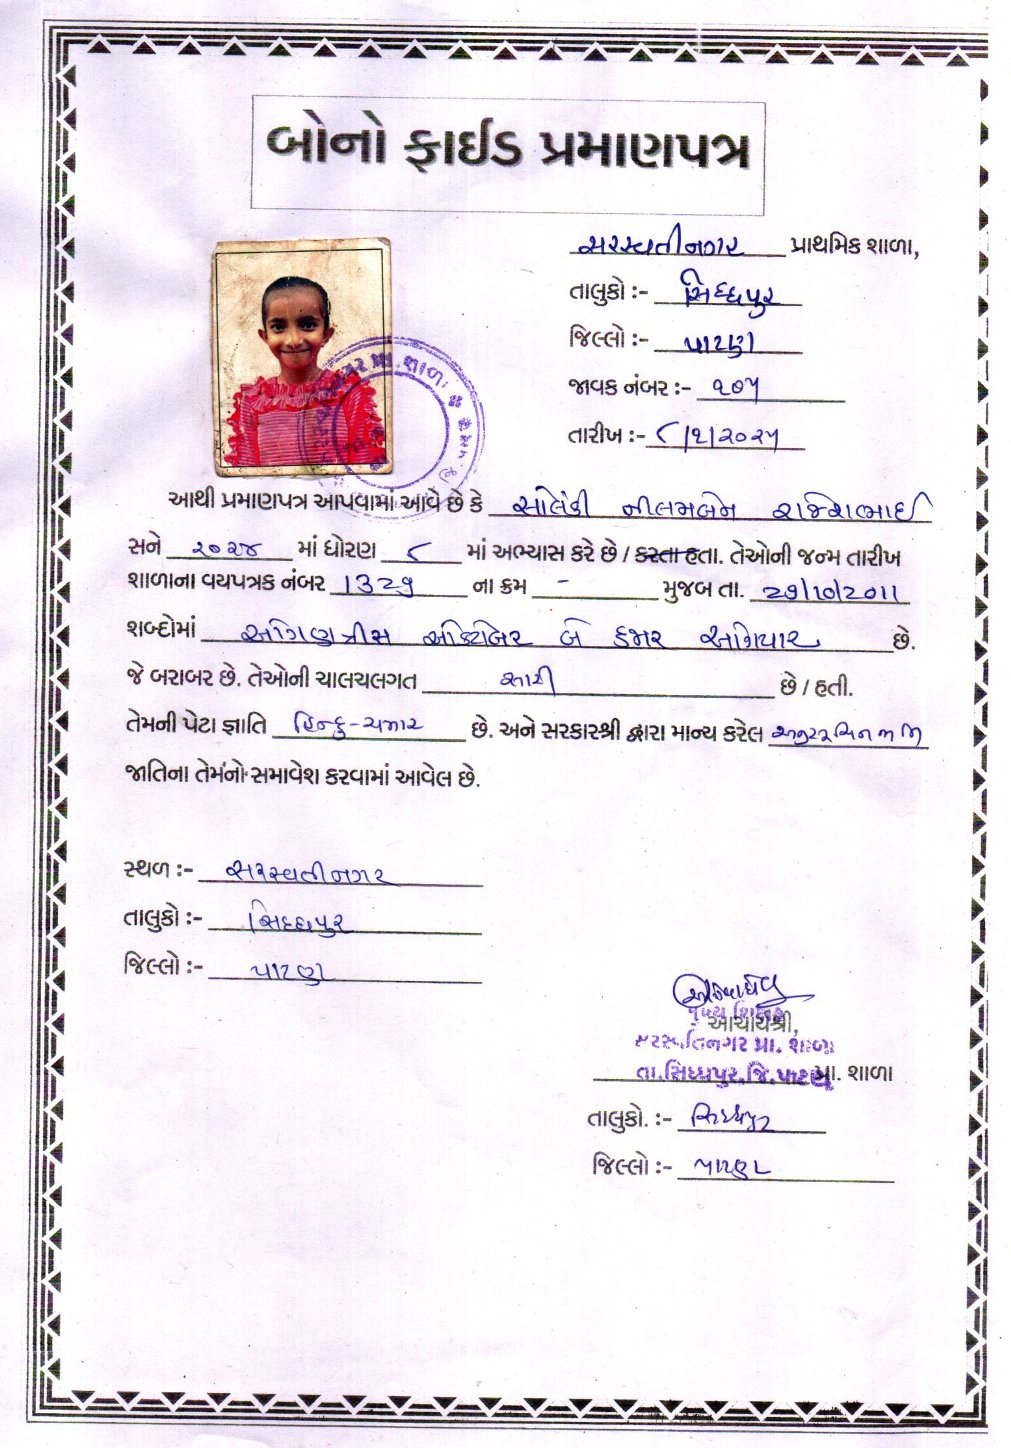 બોનો ફાઈડ પ્રમાણપત્ર
સરસ્વતીનગર પ્રાથમિક શાળા,
તાલુકો :- સિધ્ધપુર
જિલ્લો :- પાટણ
જાવક નંબર :- ૧૦૫
તારીખ :- ૮/૧/૨૦૨૫
નગર પ્રા. શાળા
આથી પ્રમાણપત્ર આપવામાં આવે છે કે સોલંકી નીલમબેન રાજેશભાઈ
સને ૨૦૨૪ માં ધોરણ ૮ માં અભ્યાસ કરે છે / કરતા હતા. તેઓની જન્મ તારીખ
શાળાના વયપત્રક નંબર 1329 ના ક્રમ - મુજબ તા. ૨૯/૧૦/૨૦૧૧
શબ્દોમાં ઓગણત્રીસ ઓક્ટોબર બે હજાર અગિયાર છે.
જે બરાબર છે. તેઓની ચાલચલગત સારી છે / હતી.
તેમની પેટા જ્ઞાતિ હિન્દુ-ચમાર છે. અને સરકારશ્રી દ્વારા માન્ય કરેલ
જાતિના તેમનો સમાવેશ કરવામાં આવેલ છે.
સ્થળ :- સરસ્વતીનગર
તાલુકો :- સિધ્ધપુર
જિલ્લો :- પાટણ
મુખ્ય શિક્ષક
આચાર્યશ્રી,
સરસ્વતિનગર પ્રા. શાળા
તા.સિધ્ધપુર,જિ.પાટણ પ્રા. શાળા
તાલુકો. :- સિધ્ધપુર
જિલ્લો :- પાટણ